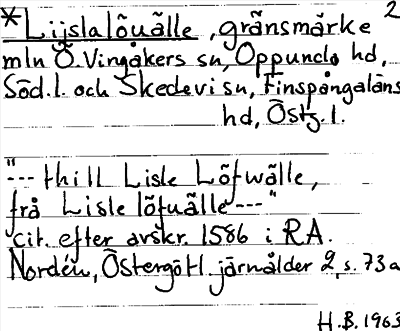 *Lijslalöuälle, gränsmärke 2
mln Ö. Vingåkers sn, Oppunda hd,
Söd. l. och Skedevi sn, Finspångaläns
hd, Östg. l.
"--- thill Lisle Löfwälle,
frå Lisle löfuälle ---"
cit. efter avskr. 1586 i RA.
Nordén, Östergötl. järnålder 2, s. 73 a
H.B. 1963